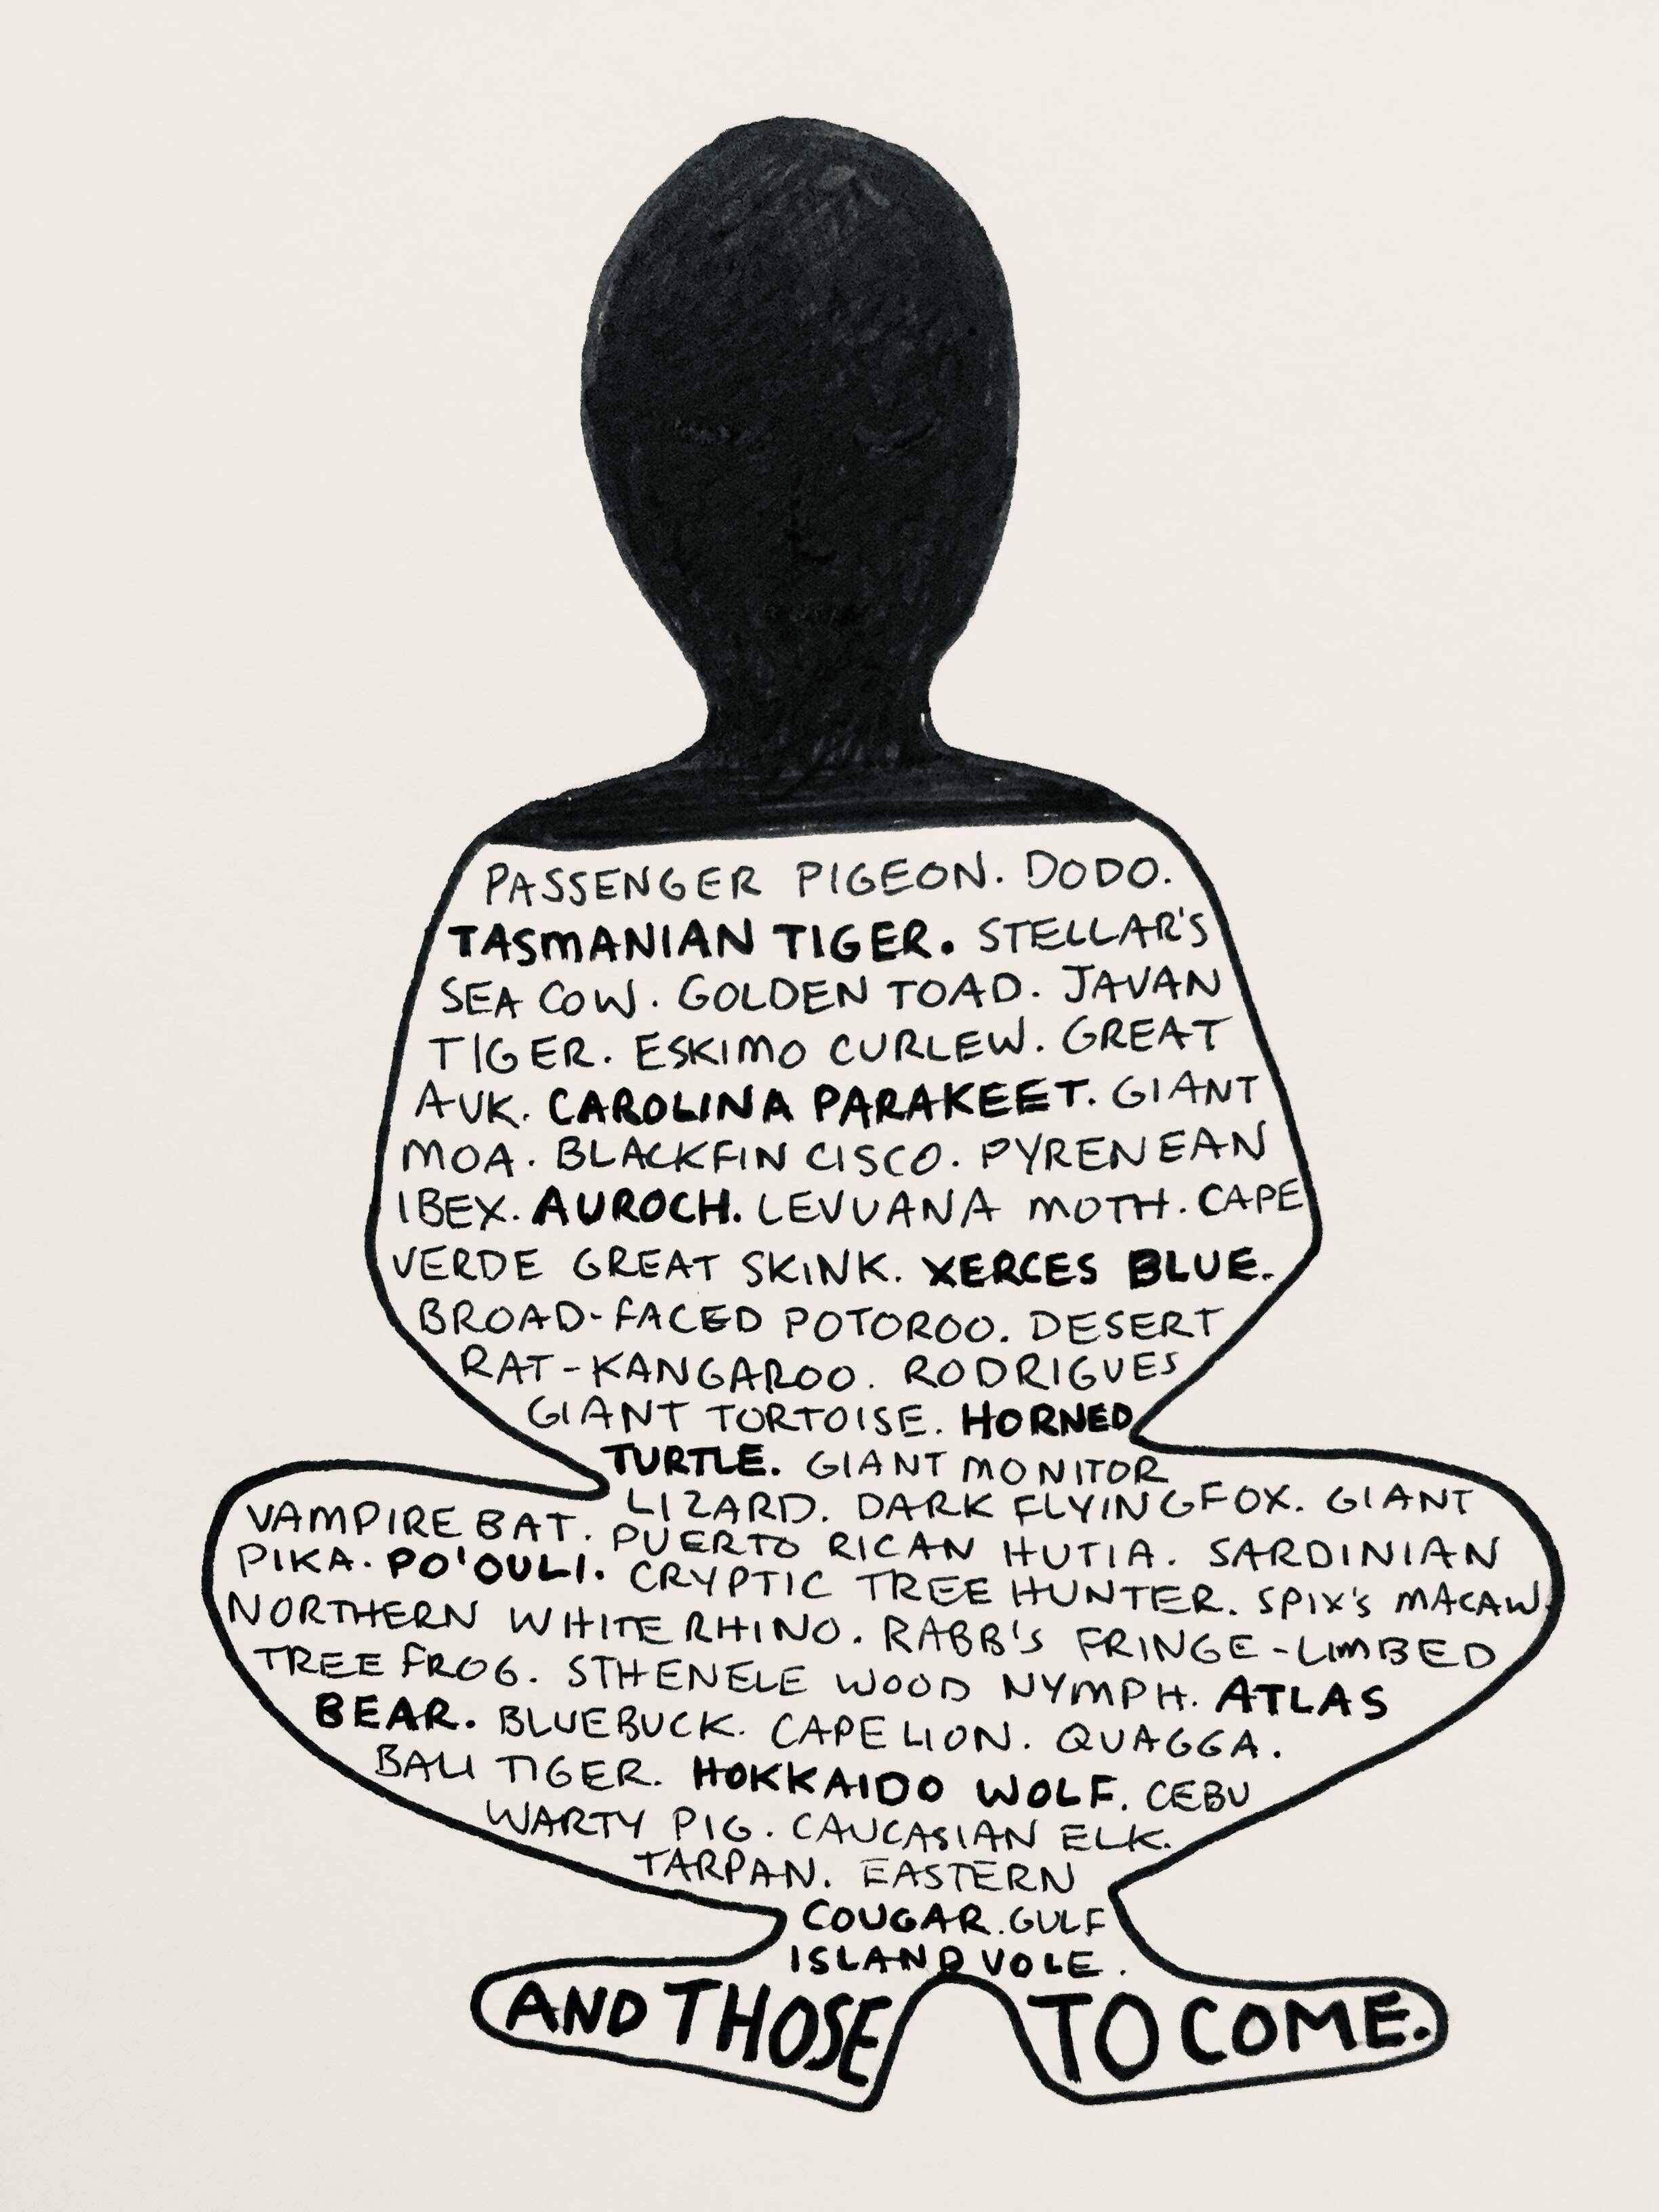 PASSENGER PIGEON. DODO.
TASMANIAN TIGER. STELLAR'S
SEA COW. GOLDEN TOAD. JAVAN
TIGER. ESKIMO CURLEW. GREAT
AUK. CAROLINA PARAKEET. GIANT
MOA. BLACKFIN CISCO. PYRENEAN
IBEX. AUROCH. LEVUANA MOTH. CAPE
VERDE GREAT SKINK. XERCES BLUE.
BROAD-FACED POTOROO. DESERT
RAT-KANGAROO. RODRIGUES
GIANT TORTOISE. HORNED
TURTLE. GIANT MONITOR
LIZARD. DARK FLYINGFOX. GIANT
VAMPIRE BAT. PUERTO RICAN HUTIA. SARDINIAN
PIKA. PO'OULI. CRYPTIC TREE HUNTER. SPIX'S MACAW.
NORTHERN WHITE RHINO. RABB'S FRINGE-LIMBED
TREE FROG. STHENELE WOOD NYMPH. ATLAS
BEAR. BLUEBUCK. CAPE LION. QUAGGA.
BALI TIGER. HOKKAIDO WOLF. CEBU
WARTY PIG. CAUCASIAN ELK.
TARPAN. EASTERN
COUGAR. GULF
ISLAND VOLE.
AND THOSE TO COME.